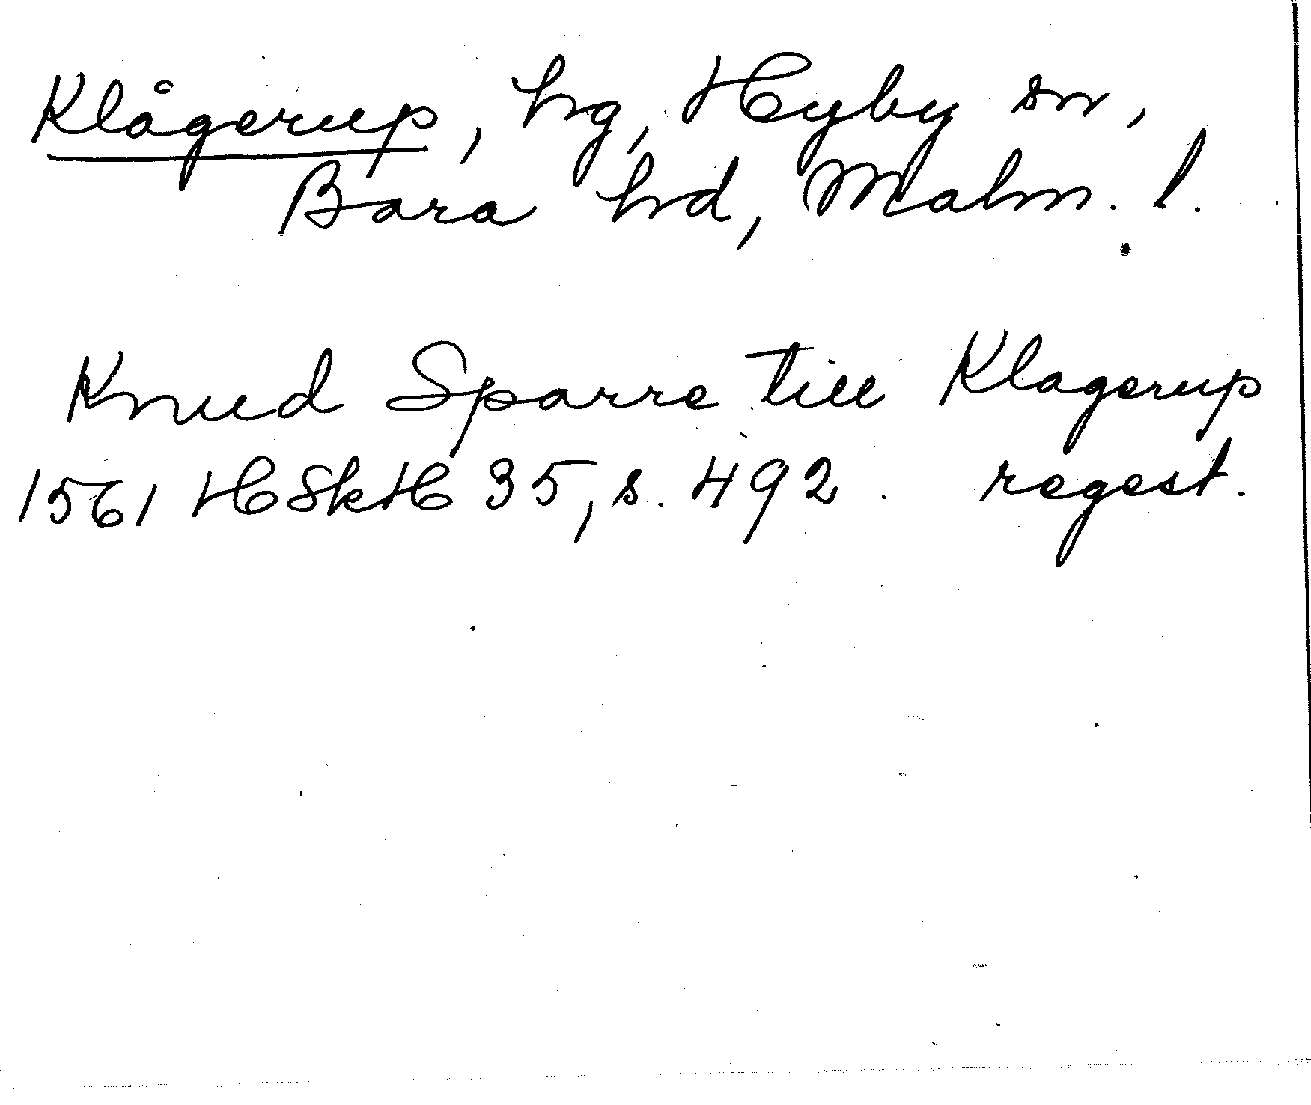 Klågerup, hg, Hyby sn,
Bara hd, Malm. l.
Knud Sparre till Klagerup
1561 HSkH 35, s. 492. regest.